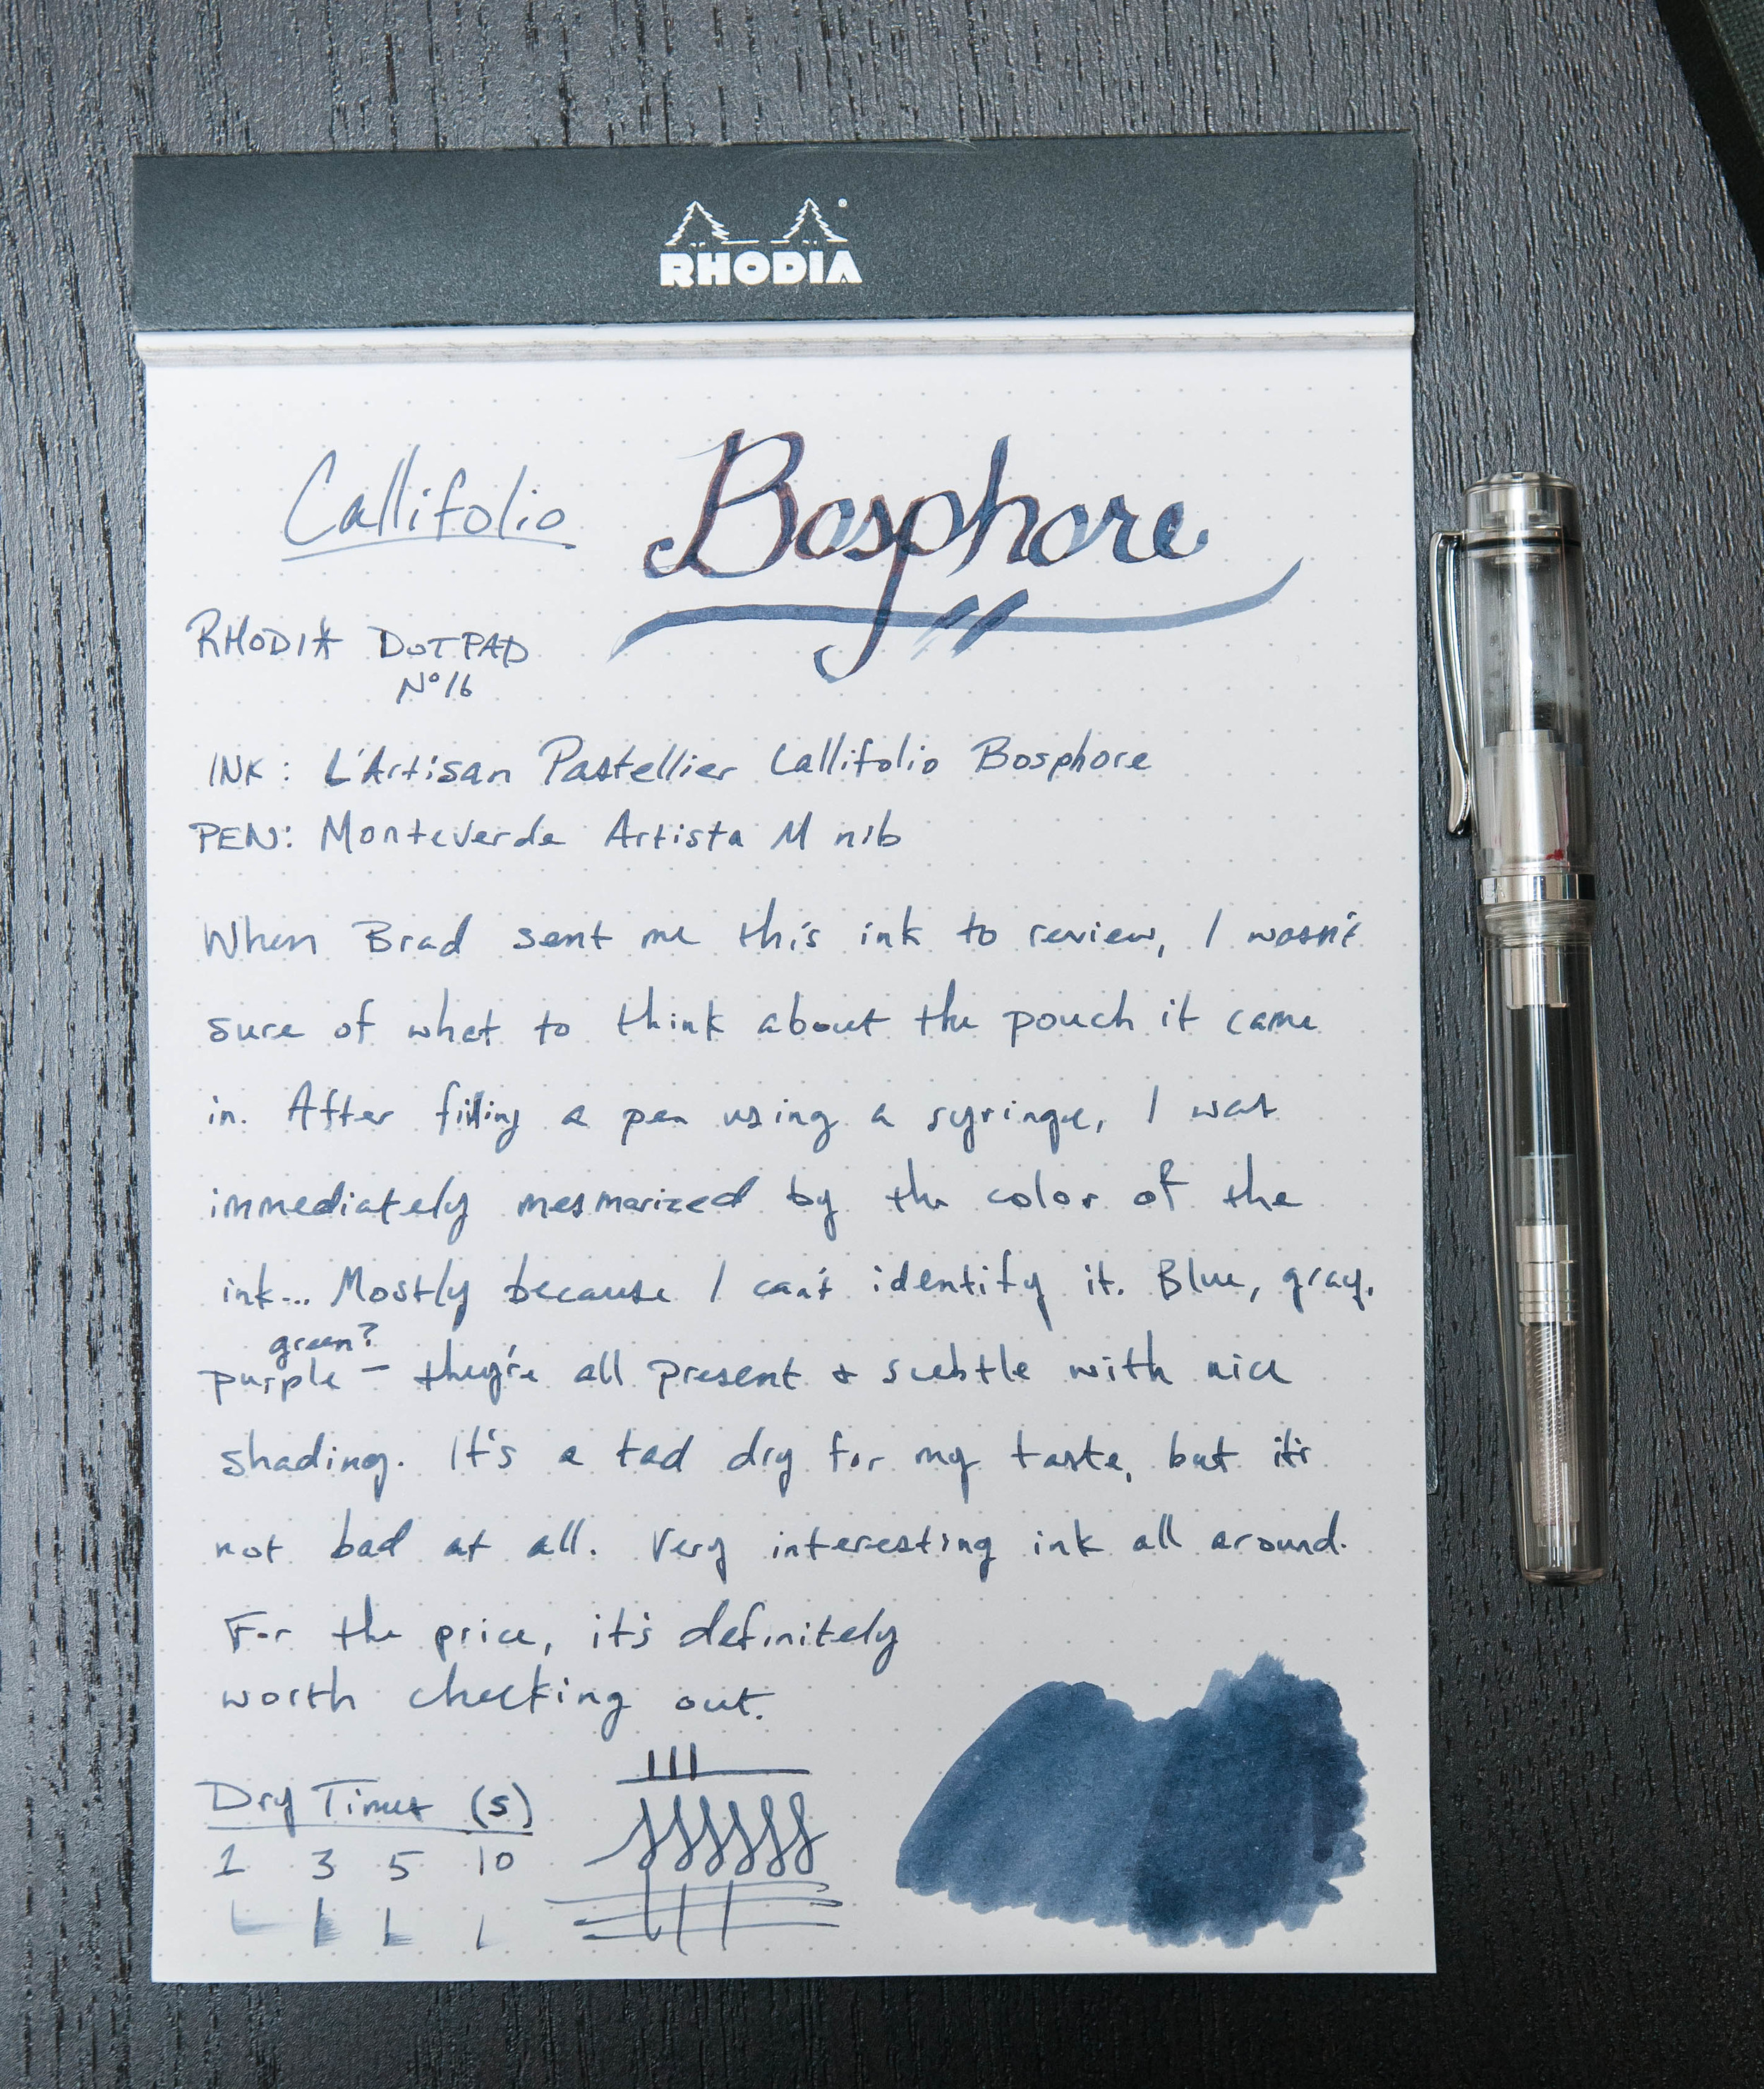 RHODIA
Callifolio Bosphore
RHODIA DOTPAD
Nº16
INK: L'Artisan Pastellier Callifolio Bosphore
PEN: Monteverde Artista M nib
When Brad sent me this ink to review, I wasn't
sure of what to think about the pouch it came
in. After filling a pen using a syringe, I was
immediately mesmerized by the color of the
ink... Mostly because I can't identify it. Blue, gray,
green?
purple – they're all present & subtle with nice
shading. It's a tad dry for my taste, but it's
not bad at all. Very interesting ink all around.
For the price, it's definitely
worth checking out.
Dry Times (s)
1 3 5 10